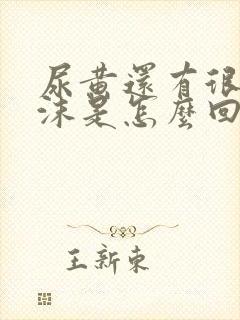 尿黃還有很
沫是怎麼回
王新東